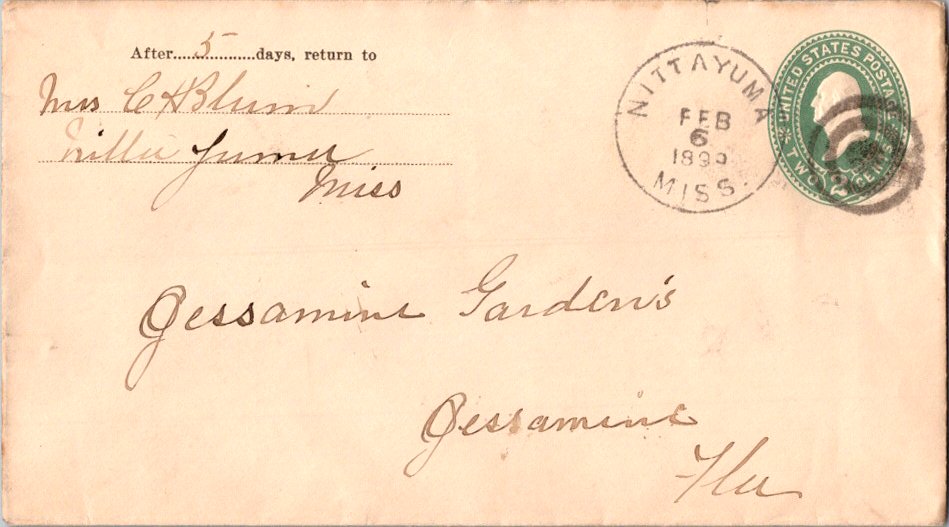 After 5 days, return to
Mrs C H Blum
Nitta Yuma
Miss
NITTAYUMA
FEB
6
MISS.
UNITED STATES POSTAGE
TWO 2 CENTS
Jessamine Garden's
Jessamine
Fla